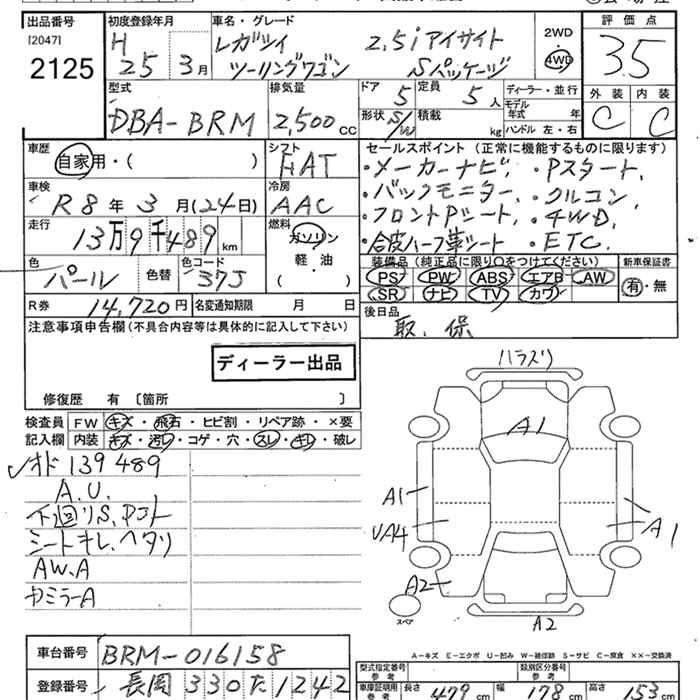 出品番号
[2047]
2125
初度登録年月
H 25 3月
車名・グレード
レガツイ 2.5i アイサイト
ツーリングワゴン Sパッケージ
2WD
・
4WD
評価点
3.5
型式
DBA-BRM
排気量
2,500 cc
ドア 5
定員 5人
形状 S/W
積載 kg
ディーラー・並行
モデル年式 年
ハンドル 左・右
外装 内装
C C
車歴
自家用・( )
シフト
FAT
車検
R8年3月(24日)
冷房
AAC
走行
13万9千489 km
燃料
ガソリン
軽・油
( )
色
パール
色替
色コード
37J
R券 14,720円
名変通知期限 月 日
セールスポイント (正常に機能するものに限ります)
・メーカーナビ. ・Pスタート.
・バックモニター. ・クルコン.
・フロントPシート. ・4WD.
・合皮ハーフ革シート ・ETC.
装備品 (純正品に限り○をつけてください)
PS PW ABS エアB AW
SR ナビ TV カワ
新車保証書
有・無
後日品
取.保
注意事項申告欄(不具合内容等は具体的に記入して下さい)
ディーラー出品
修復歴 有 〔箇所 〕
検査員
記入欄
FW キズ・飛石・ヒビ割・リペア跡・×要
内装 キズ・汚レ・コゲ・穴・スレ・キレ・破レ
オド 139489
A.U.
下回りS.
シートキレ.ヘタリ
AW.A
カミラーA
ハラスリ
A1
A1
A1
A2
A2
スペア
A-キズ E-エクボ U-凹み W-補修跡 S-サビ C-腐食 XX-交換済
車台番号 BRM-016158
登録番号 長岡 330 た 1242
型式指定番号
参考
類別区分番号
参考
車庫証明用
参考
長さ 479 cm 幅 178 cm 高さ 153 cm